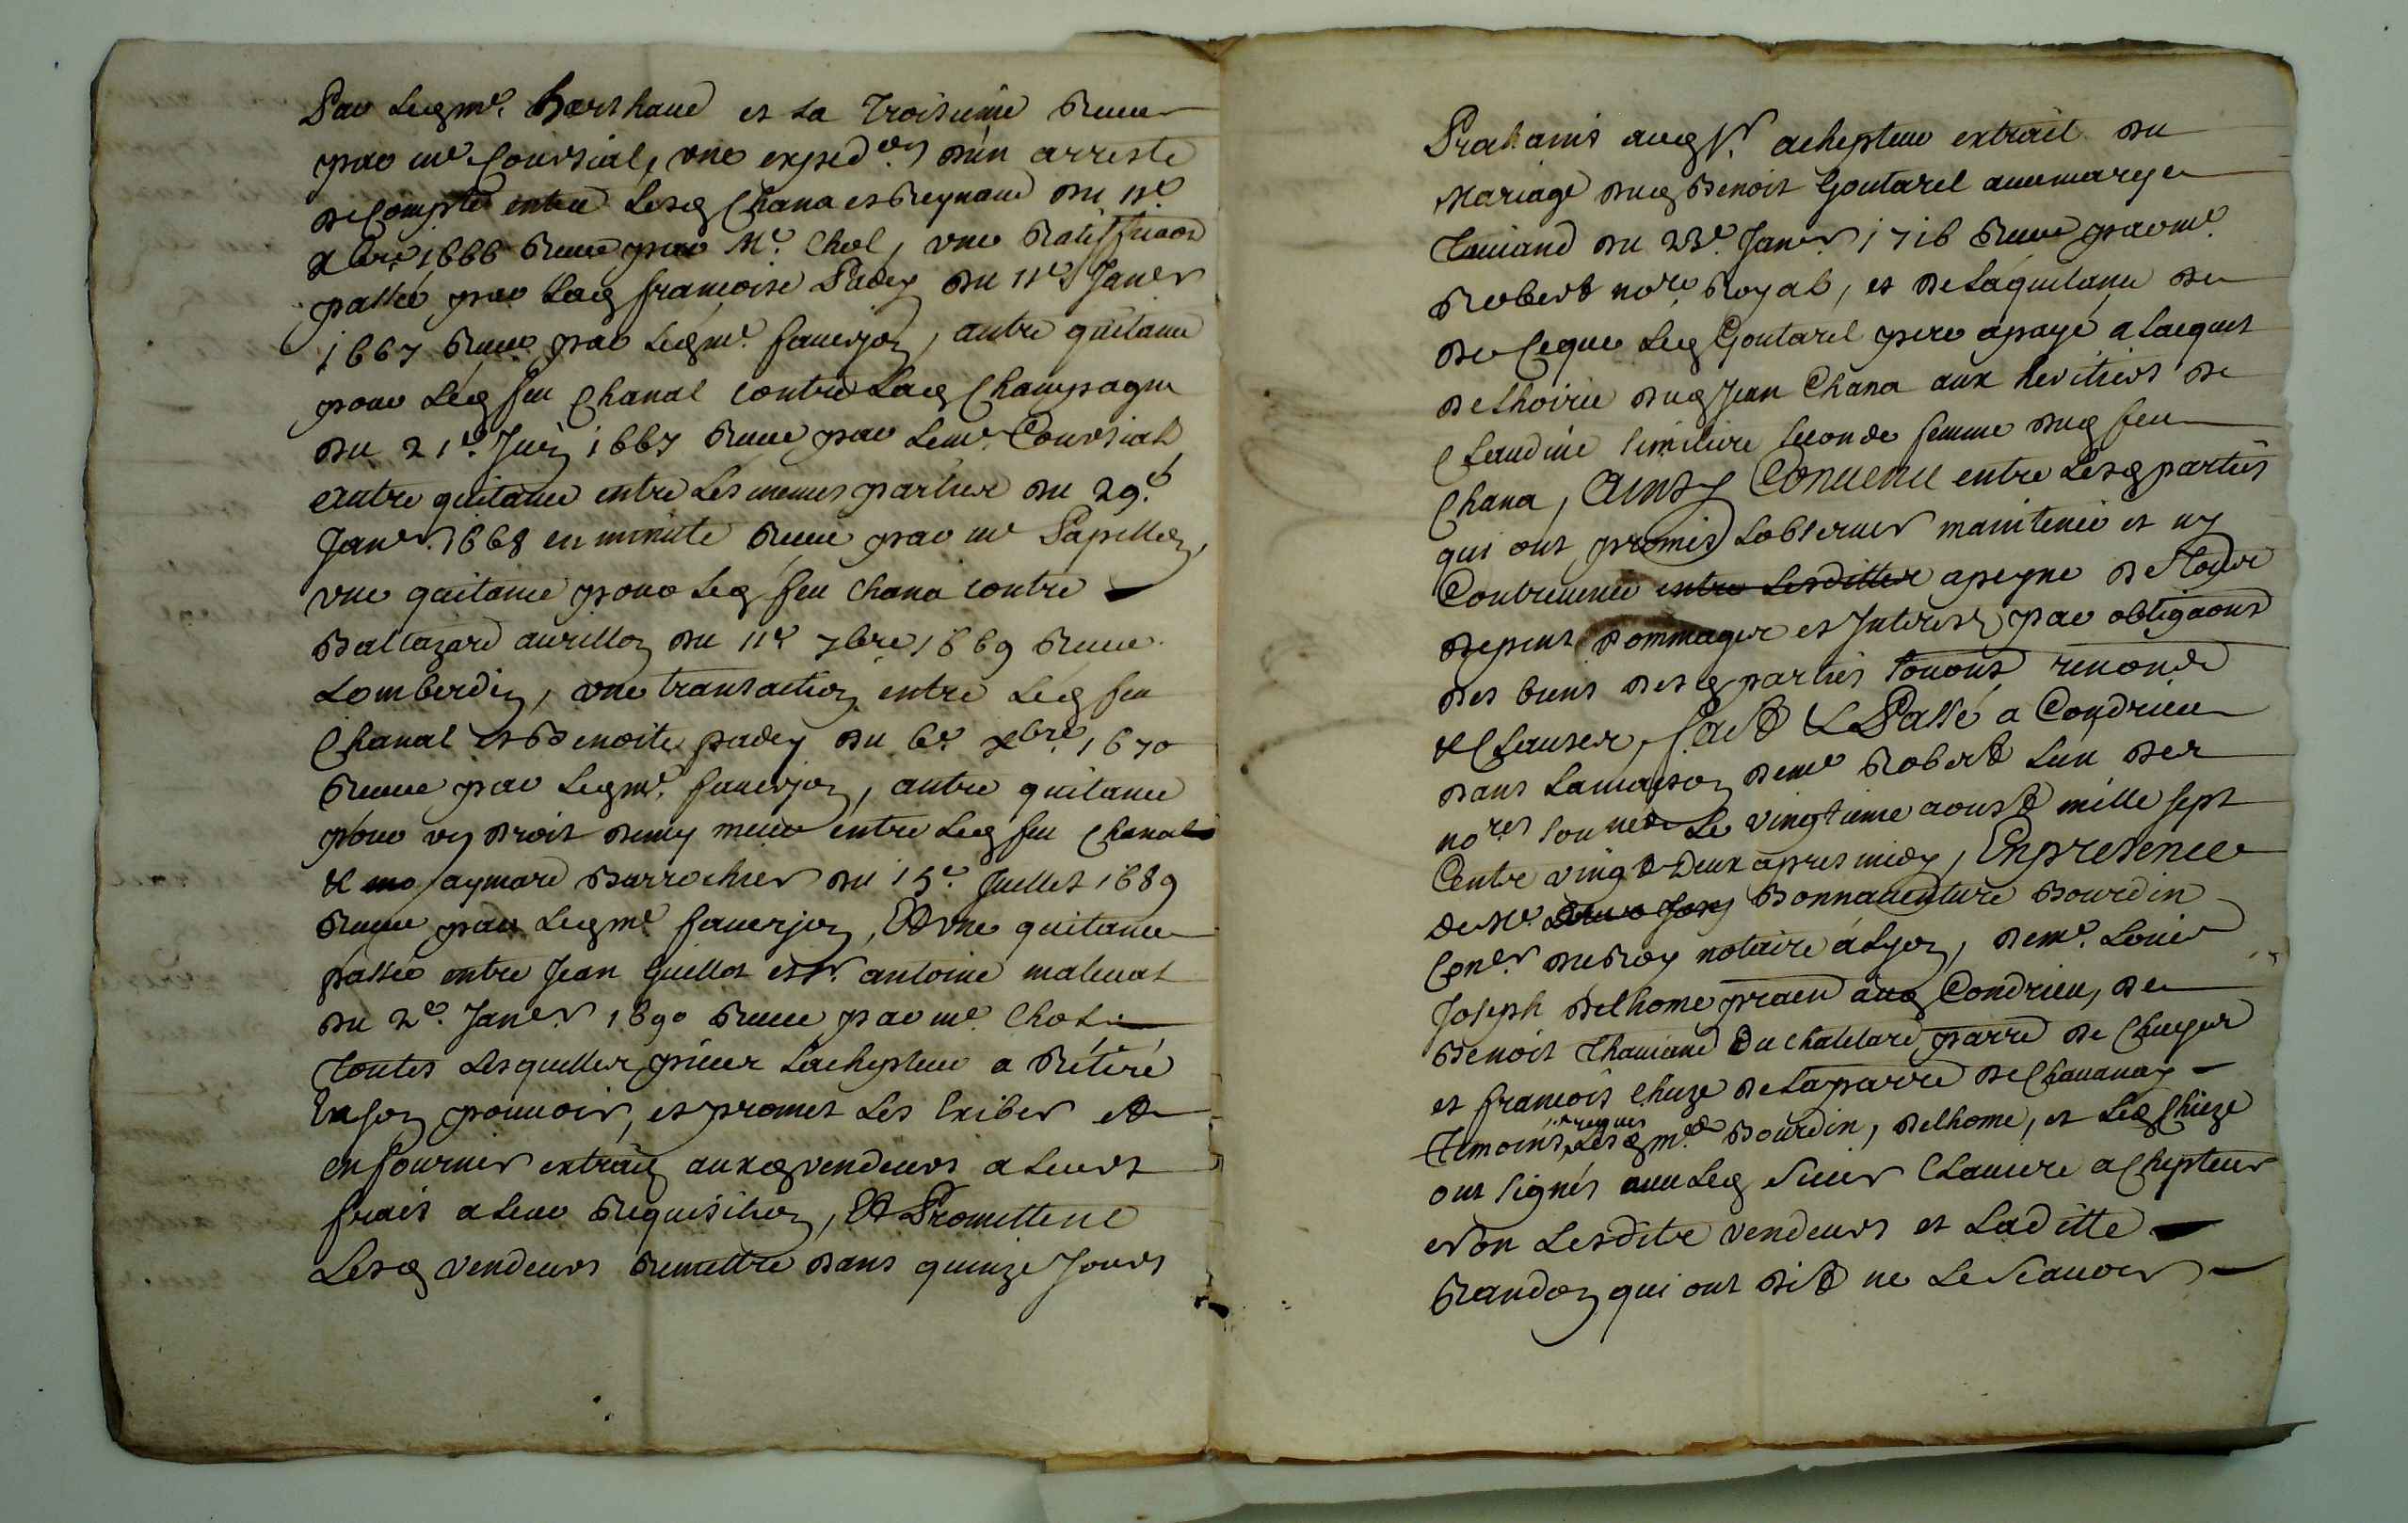 Par led me. Barthaud et la troisieme Receue
par me Coursial, une exped.on d'un arresté
de Compte entre lesd Chana et Reynaud du 11e
xbre 1666 Receue par Me. Chol, une Ratiffica͠on
passée par lad francoise Padey du 11e Janer
1667 Receue par led me. fauerjon, autre quitance
pour led feu Chanal contre lad Champagne
du 21e. Juin 1667 Receue par le me. Coursial,
autre quitance entre les memes parties du 29.e
Janer. 1668 en minute Receue par me Papillon,
une quitance pour led feu Chana contre
Baltazard aurillon du 11e 7bre 1669 Receue
Lomberdin, une transaction entre led feu
Chanal et Benoite padey du 6e. xbre 1670
Receue par led me. fauerjon, autre quitance
pour un droit de my meue entre led feu Chanal
& aymard Barrochier du 15e. Juillet 1689
Receue par led me fauerjon, Et une quitance
passée entre Jean Guillot et sr. antoine maleuat
du 2e. Janer. 1690 Receue par me. Chol
toutes lesquelles pieces lachepteur a Retiré
En son pouuoir, et promet les Exiber et
en fournir extrait auxd vendeurs a leurs
frais a leur Requisition, Et Promettent
Lesd vendeurs Remettre dans quinze Jours
Prochains aud sr. achepteur extrait du
Mariage dud Benoit Goutarel auec marye
Tauiand du 23e. Janer 1716 Receue par me.
Robert nore. Royal, et de la quitance de
de Ceque led Goutarel pere a payé a lacquit
de lhoirie dud Jean Chana aux heritiers de
Claudine Simeliere seconde femme dud feu
Chana, Ainsy Conuenu entre lesd parties
qui ont promis lobseruer maintenir et ny
Contreuenir entre lesdittes a peyne de tous
depens dommages et Interest par obliga͠ons
des biens desd parties soumis renonce
& Clauses, fait & Passé a Condrieu
dans la maison de me Robert lun des
nores sousnes Le vingtieme aoust mille sept
Centz vingt deux apres midy, En presence
de Me. Bonnauenture Bourdin
Coner. du Roy notaire a Lyon, de me. Louis
Joseph delhome pra͠en aud Condrieu, de
Benoit Thauiand du Chatelard parre de Chuyer
et francois Chuze de la parre de Chauanay
Temoins requis Lesd mes Bourdin, delhome, et led Chuze
ont signés auec led sieur Clauiere achepteur
et non Lesdits vendeurs et Laditte
Randon qui ont dit ne le scauoir